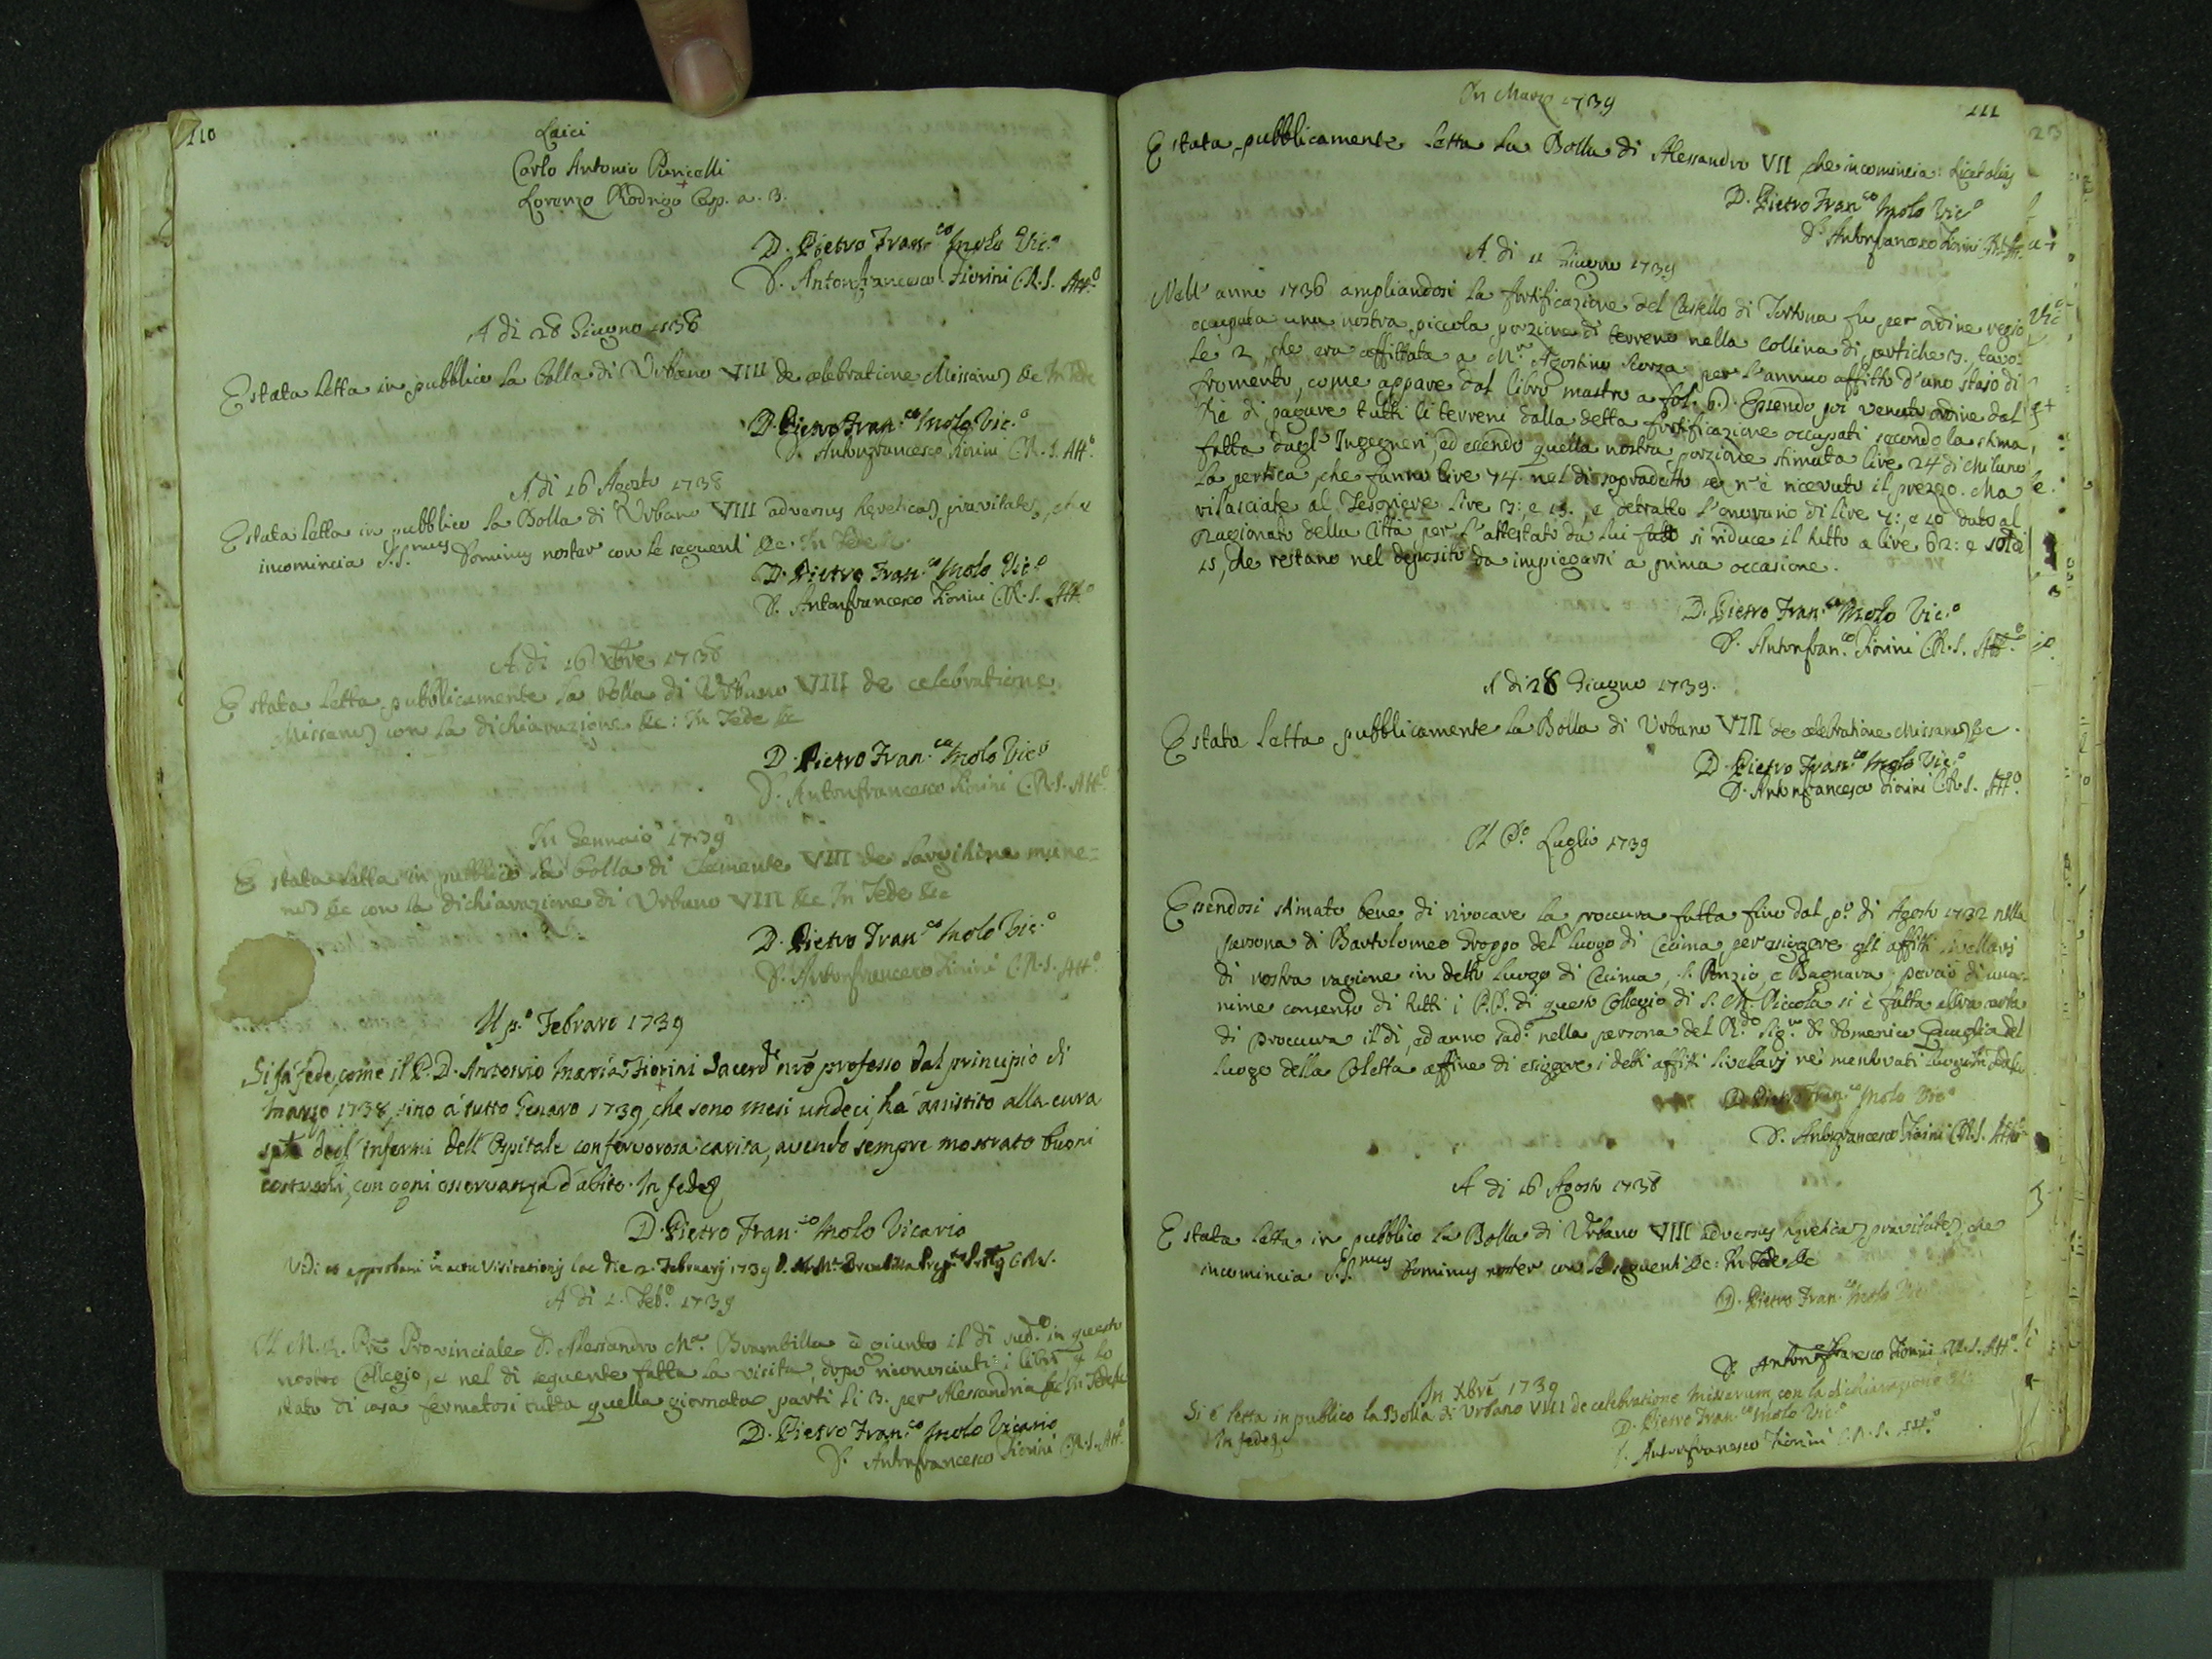 110
Laici
Carlo Antonio Puricelli
Lorenzo Rodrigo Osp. a. 3.
D. Pietro Fran.co Molo Vic.o
D. Antonfrancesco Fiorini C.R.S. Att.o
A di 28 Giugno 1738
E stata letta in pubblico la bolla di Urbano VIII de celebratione Missarum &c In Fede
D. Pietro Fran.co Molo Vic.o
D. Antonfrancesco Fiorini C.R.S. Att.o
A di 16 Agosto 1738
E stata letta in pubblico la Bolla di Urbano VIII adversus hereticam pravitatem, che
incomincia S.S.mus Dominus noster con le seguenti &c. In Fede &c.
D. Pietro Fran.co Molo Vic.o
D. Antonfrancesco Fiorini C.R.S. Att.o
A di 16 Xbre 1738
E stata letta pubblicamente la bolla di Urbano VIII de celebratione
Missarum con la dichiarazione &c: In Fede &c
D. Pietro Fran.co Molo Vic.o
D. Antonfrancesco Fiorini C.R.S. Att.o
In Gennaio 1739
E stata letta in pubblico la bolla di Clemente VIII de largitione mune=
rum &c con la dichiarazione di Urbano VIII &c In Fede &c
D. Pietro Fran.co Molo Vic.o
D. Antonfrancesco Fiorini C.R.S. Att.o
Il p.o Febraro 1739
Si fà fede, come il P. D. Antonio Maria Fiorini Sacerd.e nro professo dal principio di
Marzo 1738, sino a tutto Genaro 1739, che sono mesi undeci, hà assistito alla cura
sple degl' infermi dell' Ospitale con fervorosa carita, avendo sempre mostrato buoni
costumi, con ogni osservanza d'abito. In fede
D. Pietro Fran.co Molo Vicario
Vidi et approbavi in actu Visitationis hac die 2. Februarij 1739 D. Brambilla Prep. C.R.S.
A di 1. Feb.o 1739
Il M. R. Pre Provinciale D. Alessandro M.a Brambilla è giunto il di sud.o in questo
nostro Collegio, e nel di seguente fatta la visita, dopo riconosciuti i libri, e lo
stato di casa fermatosi tutta quella giornata partì li 3. per Alessandria &c In Fede &c
D. Pietro Fran.co Molo Vicario
D. Antonfrancesco Fiorini C.R.S. Att.o
111
In Marzo 1739
E stata pubblicamente letta la Bolla di Alessandro VII che incomincia: Licet alias
D. Pietro Fran.co Molo Vic.o
D. Antonfrancesco Fiorini C.R.S. Att.o
A di 11 Giugno 1739
Nell' anno 1736 ampliandosi la fortificazione del Castello di Tortona fu per ordine regio
occupata una nostra piccola porzione di terreno nella collina di pertiche 3, tavo=
le 2, che era affittata a M.r Agostino Scorza per l'annuo affitto d'uno stajo di
fromento, come appare dal libro mastro a fol. 6.) Essendo poi venuto ordine dal
Rè di pagare tutti li terreni dalla detta fortificazione occupati secondo la stima,
fatta dagl' Ingegneri, ed essendo quella nostra porzione stimata lire 24 di Milano
la pertica, che fanno lire 74. nel di sopradetto se n'è ricevuto il prezzo. Ma
rilasciate al Tesoriere lire 3: e 15., e detratto l'onorario di lire 7: e 10 dato al
Ragionato della Città, per l'attestato da lui fatto si riduce il tutto a lire 62: e soldi
15, che restano nel deposito da impiegarsi a prima occasione.
D. Pietro Fran.co Molo Vic.o
D. Antonfran.co Fiorini C.R.S. Att.o
A di 28 Giugno 1739.
E stata letta pubblicamente la Bolla di Urbano VIII de celebratione Missarum &c.
D. Pietro Fran.co Molo Vic.o
D. Antonfrancesco Fiorini C.R.S. Att.o
Il P.o Luglio 1739
Essendosi stimato bene di rivocare la proccura fatta fino dal p.o di Agosto 1732 nella
persona di Bartolomeo Groppo del luogo di Cecima per esiggere gli affitti livellarj
di nostra ragione in detto luogo di Cecima, S. Ponzio, e Bagnara; perciò di una=
nime consenso di tutti i P.P. di questo Collegio di S. M. Piccola si è fatta altra carta
di proccura il dì, ed anno sud.o nella persona del R.do Sig.r D. Domenico del
luogo della Coletta affine di esiggere i detti affitti livelarj ne' mentovati luoghi. In Fede &c
D. Pietro Fran.co Molo Vic.o
D. Antonfrancesco Fiorini C.R.S. Att.o
A di 16 Agosto 1738
E stata letta in pubblico la Bolla di Urbano VIII adversus hereticam pravitatem, che
incomincia S.S.mus Dominus noster con le seguenti &c: In Fede &c
D. Pietro Fran.co Molo Vic.o
D. Antonfrancesco Fiorini C.R.S. Att.o
In Xbre 1739
Si è letta in publico la Bolla di Urbano VIII de celebratione Missarum con la dichiarazione &c
In fede
D. Pietro Fran.co Molo Vic.o
D. Antonfrancesco Fiorini C.R.S. Att.o